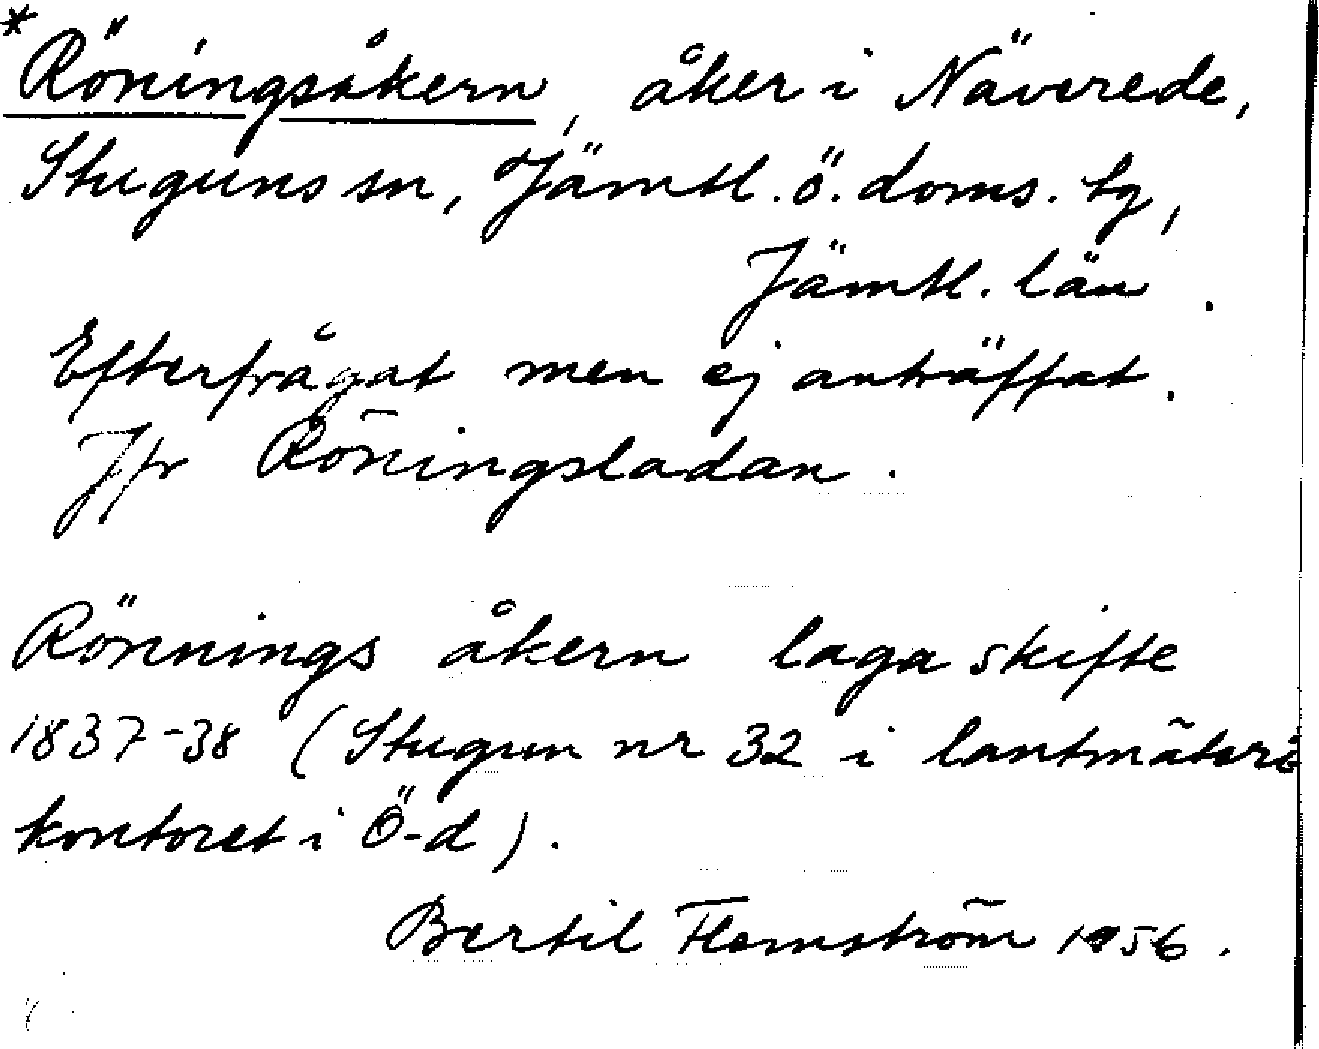 *Röningsåkern, åker i Näverede,
Stuguns sn, Jämtl. ö. doms. tg,
Jämtl. län.
Efterfrågat men ej anträffat.
Jfr Röningsladan.
Rönnings åkern laga skifte
1837-38 (Stugun nr 32 i lantmäteri
kontoret i Ö-d).
Bertil Flemström 1956.